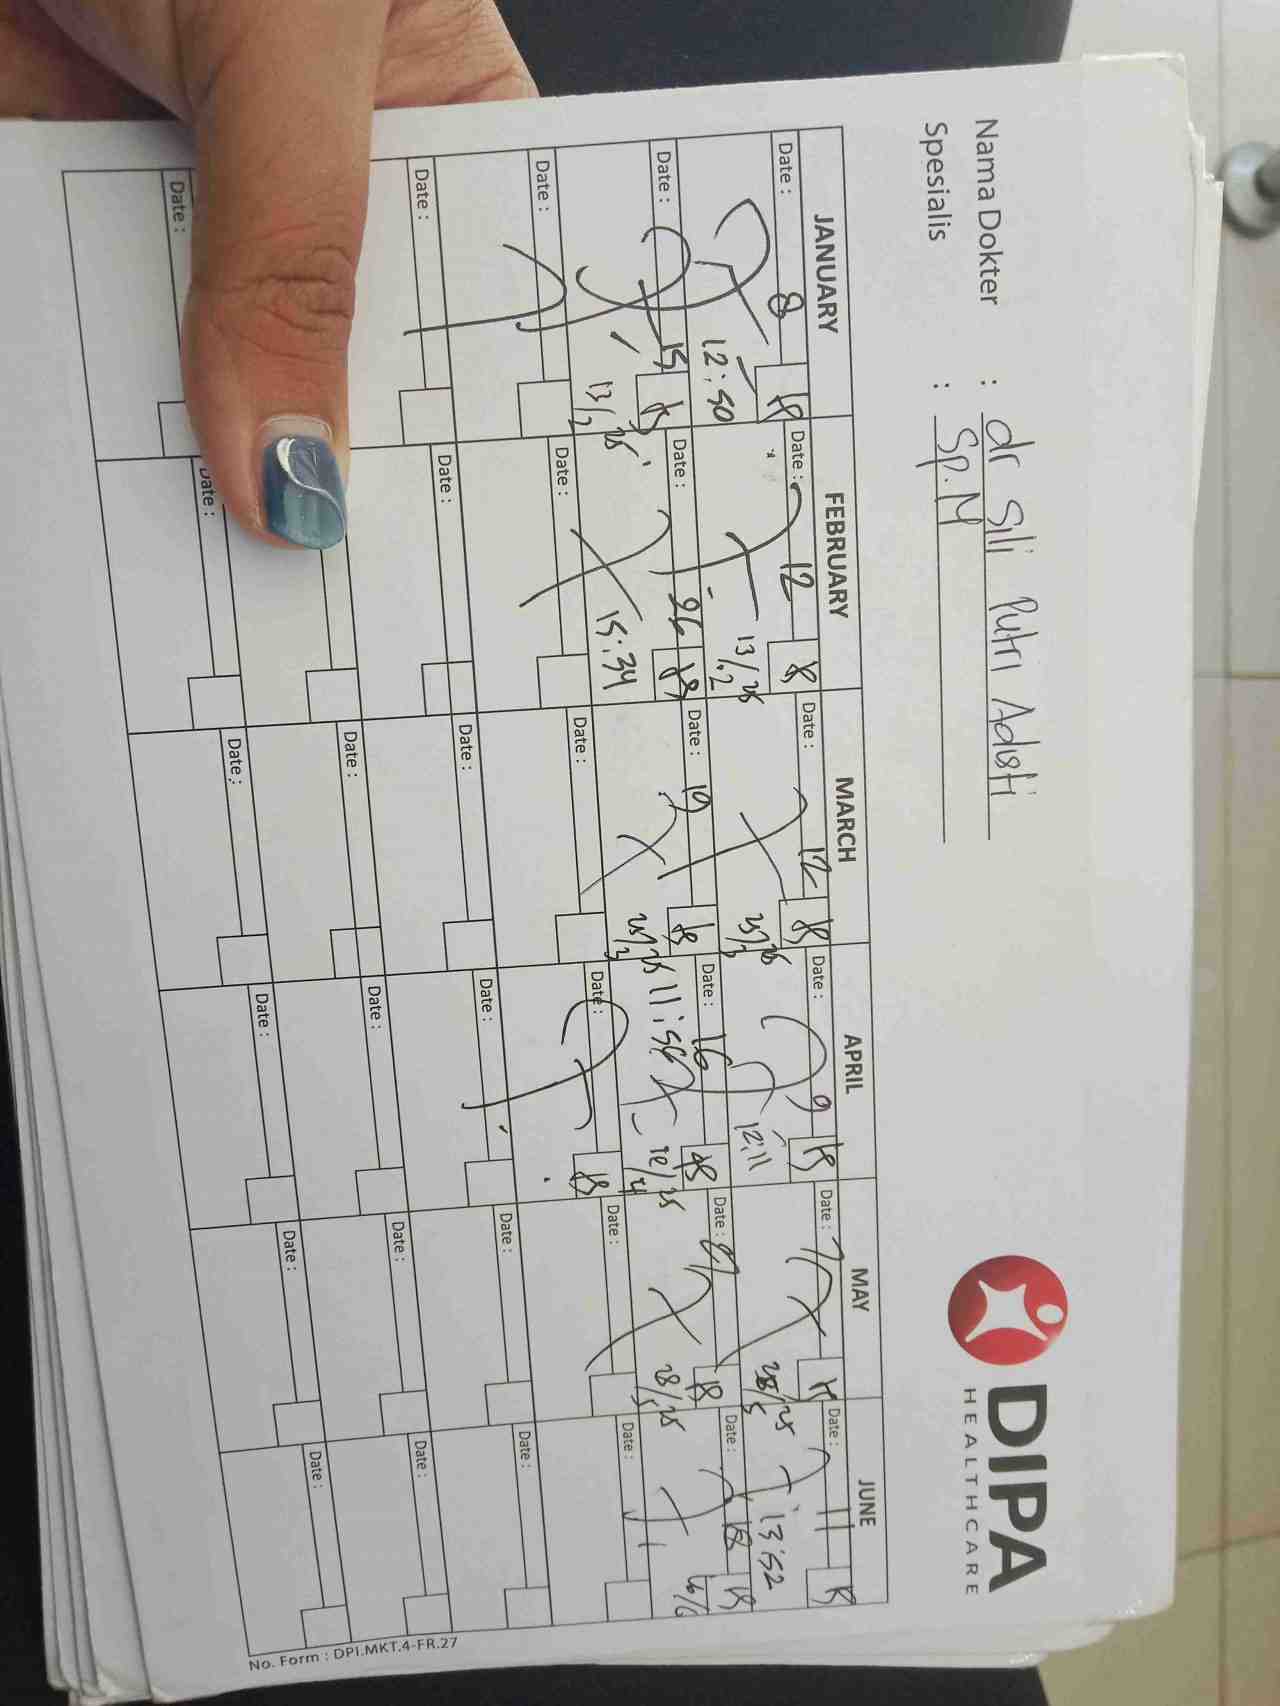 DIPA
HEALTHCARE
Nama Dokter : dr Sili Putri Adisti
Spesialis : Sp.M
JANUARY FEBRUARY MARCH APRIL MAY JUNE
Date : 8 Date : 12 Date : 12 Date : 9 Date : 7 Date : 11
12:50 13/2 25 25/3 25 12:11 28/5 25 13:52
Date : 15 Date : 26 Date : 19 Date : 16 Date : Date : 18
13/2 25 15:34 25/3 25 11:56 28/5 25
Date : Date : Date : Date : Date : Date :
Date : Date : Date : Date : Date : Date :
Date : Date : Date : Date : Date :
Date : Date : Date :
No. Form : DPI.MKT.4-FR.27